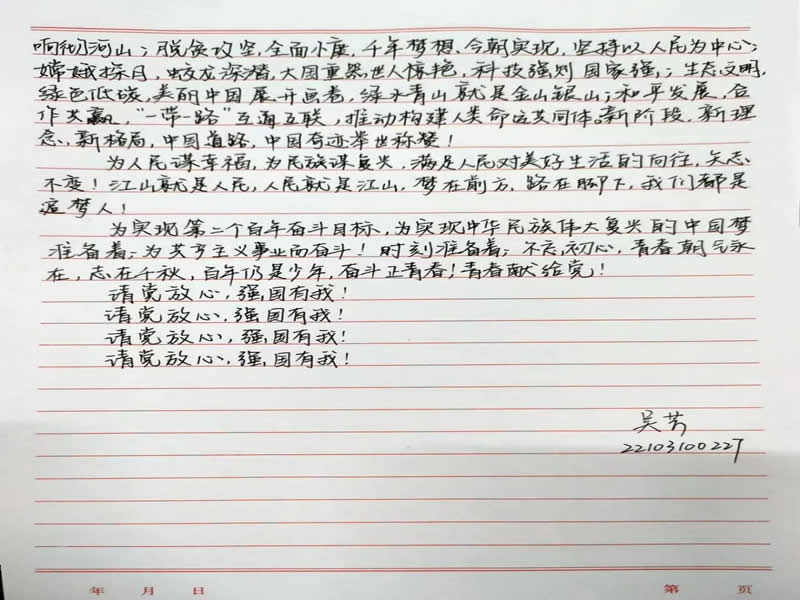 响彻河山；脱贫攻坚，全面小康，千年梦想、今朝实现，坚持以人民为中心；
嫦娥探月，蛟龙深潜，大国重器世人惊艳，科技强则国家强；生态文明，
绿色低碳，美丽中国展开画卷，绿水青山就是金山银山；和平发展，合
作共赢，"一带一路"互通互联，推动构建人类命运共同体。新阶段，新理
念，新格局，中国道路，中国奇迹举世称赞！
为人民谋幸福，为民族谋复兴，满足人民对美好生活的向往，矢志
不变！江山就是人民，人民就是江山，梦在前方，路在脚下，我们都是
追梦人！
为实现第二个百年奋斗目标，为实现中华民族伟大复兴的中国梦
准备着；为共产主义事业而奋斗！时刻准备着；不忘初心，青春朝气永
在，志在千秋，百年仍是少年，奋斗正青春！青春献给党！
请党放心，强国有我！
请党放心，强国有我！
请党放心，强国有我！
请党放心，强国有我！
吴芳
22103100227
年 月 日 第 页